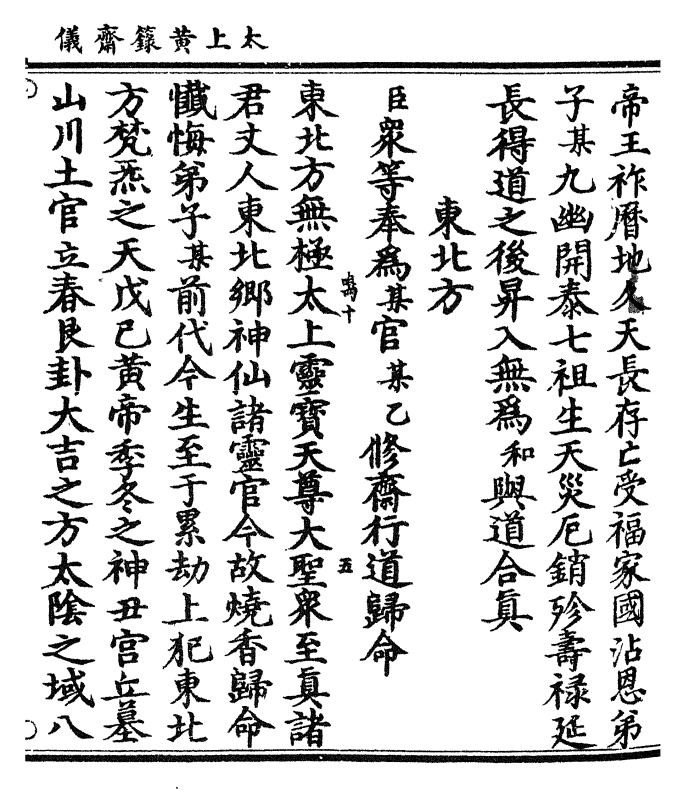 太上黃籙齋儀
帝王祚曆地久天長存亡受福家國沾恩弟
子某九幽開泰七祖生天災厄銷殄壽祿延
長得道之後昇入無為和與道合眞
東北方
臣衆等奉為某官某乙修齋行道歸命
東北方無極太上靈寶天尊大聖衆至眞諸
鳴十
五
君丈人東北鄉神仙諸靈官今故燒香歸命
懺悔弟子某前代今生至于累劫上犯東北
方梵炁之天戊己黃帝季冬之神丑宮丘墓
山川土官立春艮卦大吉之方太陰之域八